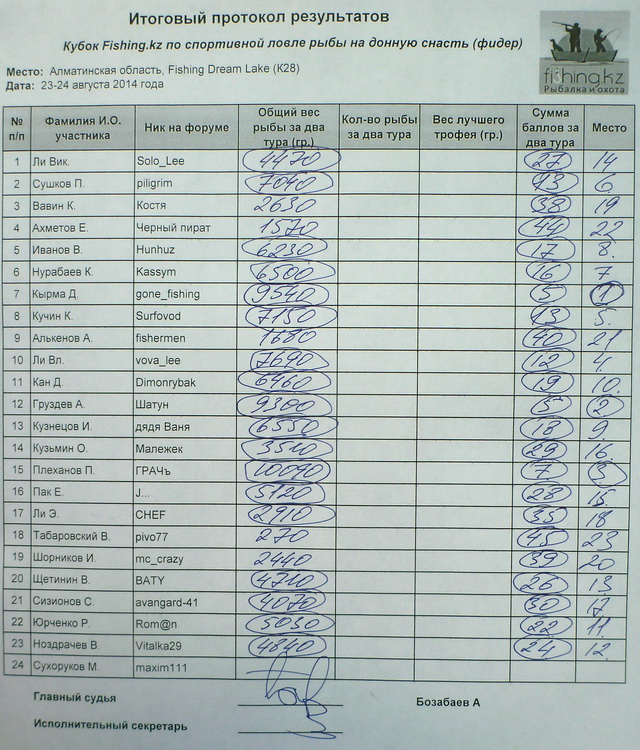 Итоговый протокол результатов
Кубок Fishing.kz по спортивной ловле рыбы на донную снасть (фидер)
fishing.kz
Рыбалка и охота
Место: Алматинская область, Fishing Dream Lake (К28)
Дата: 23-24 августа 2014 года
№ п/п Фамилия И.О. участника Ник на форуме Общий вес рыбы за два тура (гр.) Кол-во рыбы за два тура Вес лучшего трофея (гр.) Сумма баллов за два тура Место
1 Ли Вик. Solo_Lee 4470 27 14
2 Сушков П. piligrim 7040 13 6
3 Вавин К. Костя 2630 38 19
4 Ахметов Е. Черный пират 1570 44 22
5 Иванов В. Hunhuz 6230 17 8.
6 Нурабаев К. Kassym 6500 16 7
7 Кырма Д. gone_fishing 9540 5 1
8 Кучин К. Surfovod 7150 13 5.
9 Алькенов А. fishermen 1680 40 21
10 Ли Вл. vova_lee 7690 12 4.
11 Кан Д. Dimonrybak 6460 19 10.
12 Груздев А. Шатун 9300 5 2
13 Кузнецов И. дядя Ваня 6550 18 9.
14 Кузьмин О. Малежек 3510 29 16.
15 Плеханов П. ГРАЧъ 10090 7 3
16 Пак Е. J... 5120 28 15
17 Ли Э. CHEF 2910 35 18
18 Табаровский В. pivo77 270 45 23
19 Шорников И. mc_crazy 2440 39 20
20 Щетинин В. BATY 4710 26 13.
21 Сизионов С. avangard-41 4070 30 17.
22 Юрченко Р. Rom@n 5030 22 11.
23 Ноздрачев В. Vitalka29 4840 24 12.
24 Сухоруков М. maxim111
Главный судья Бозабаев А
Исполнительный секретарь